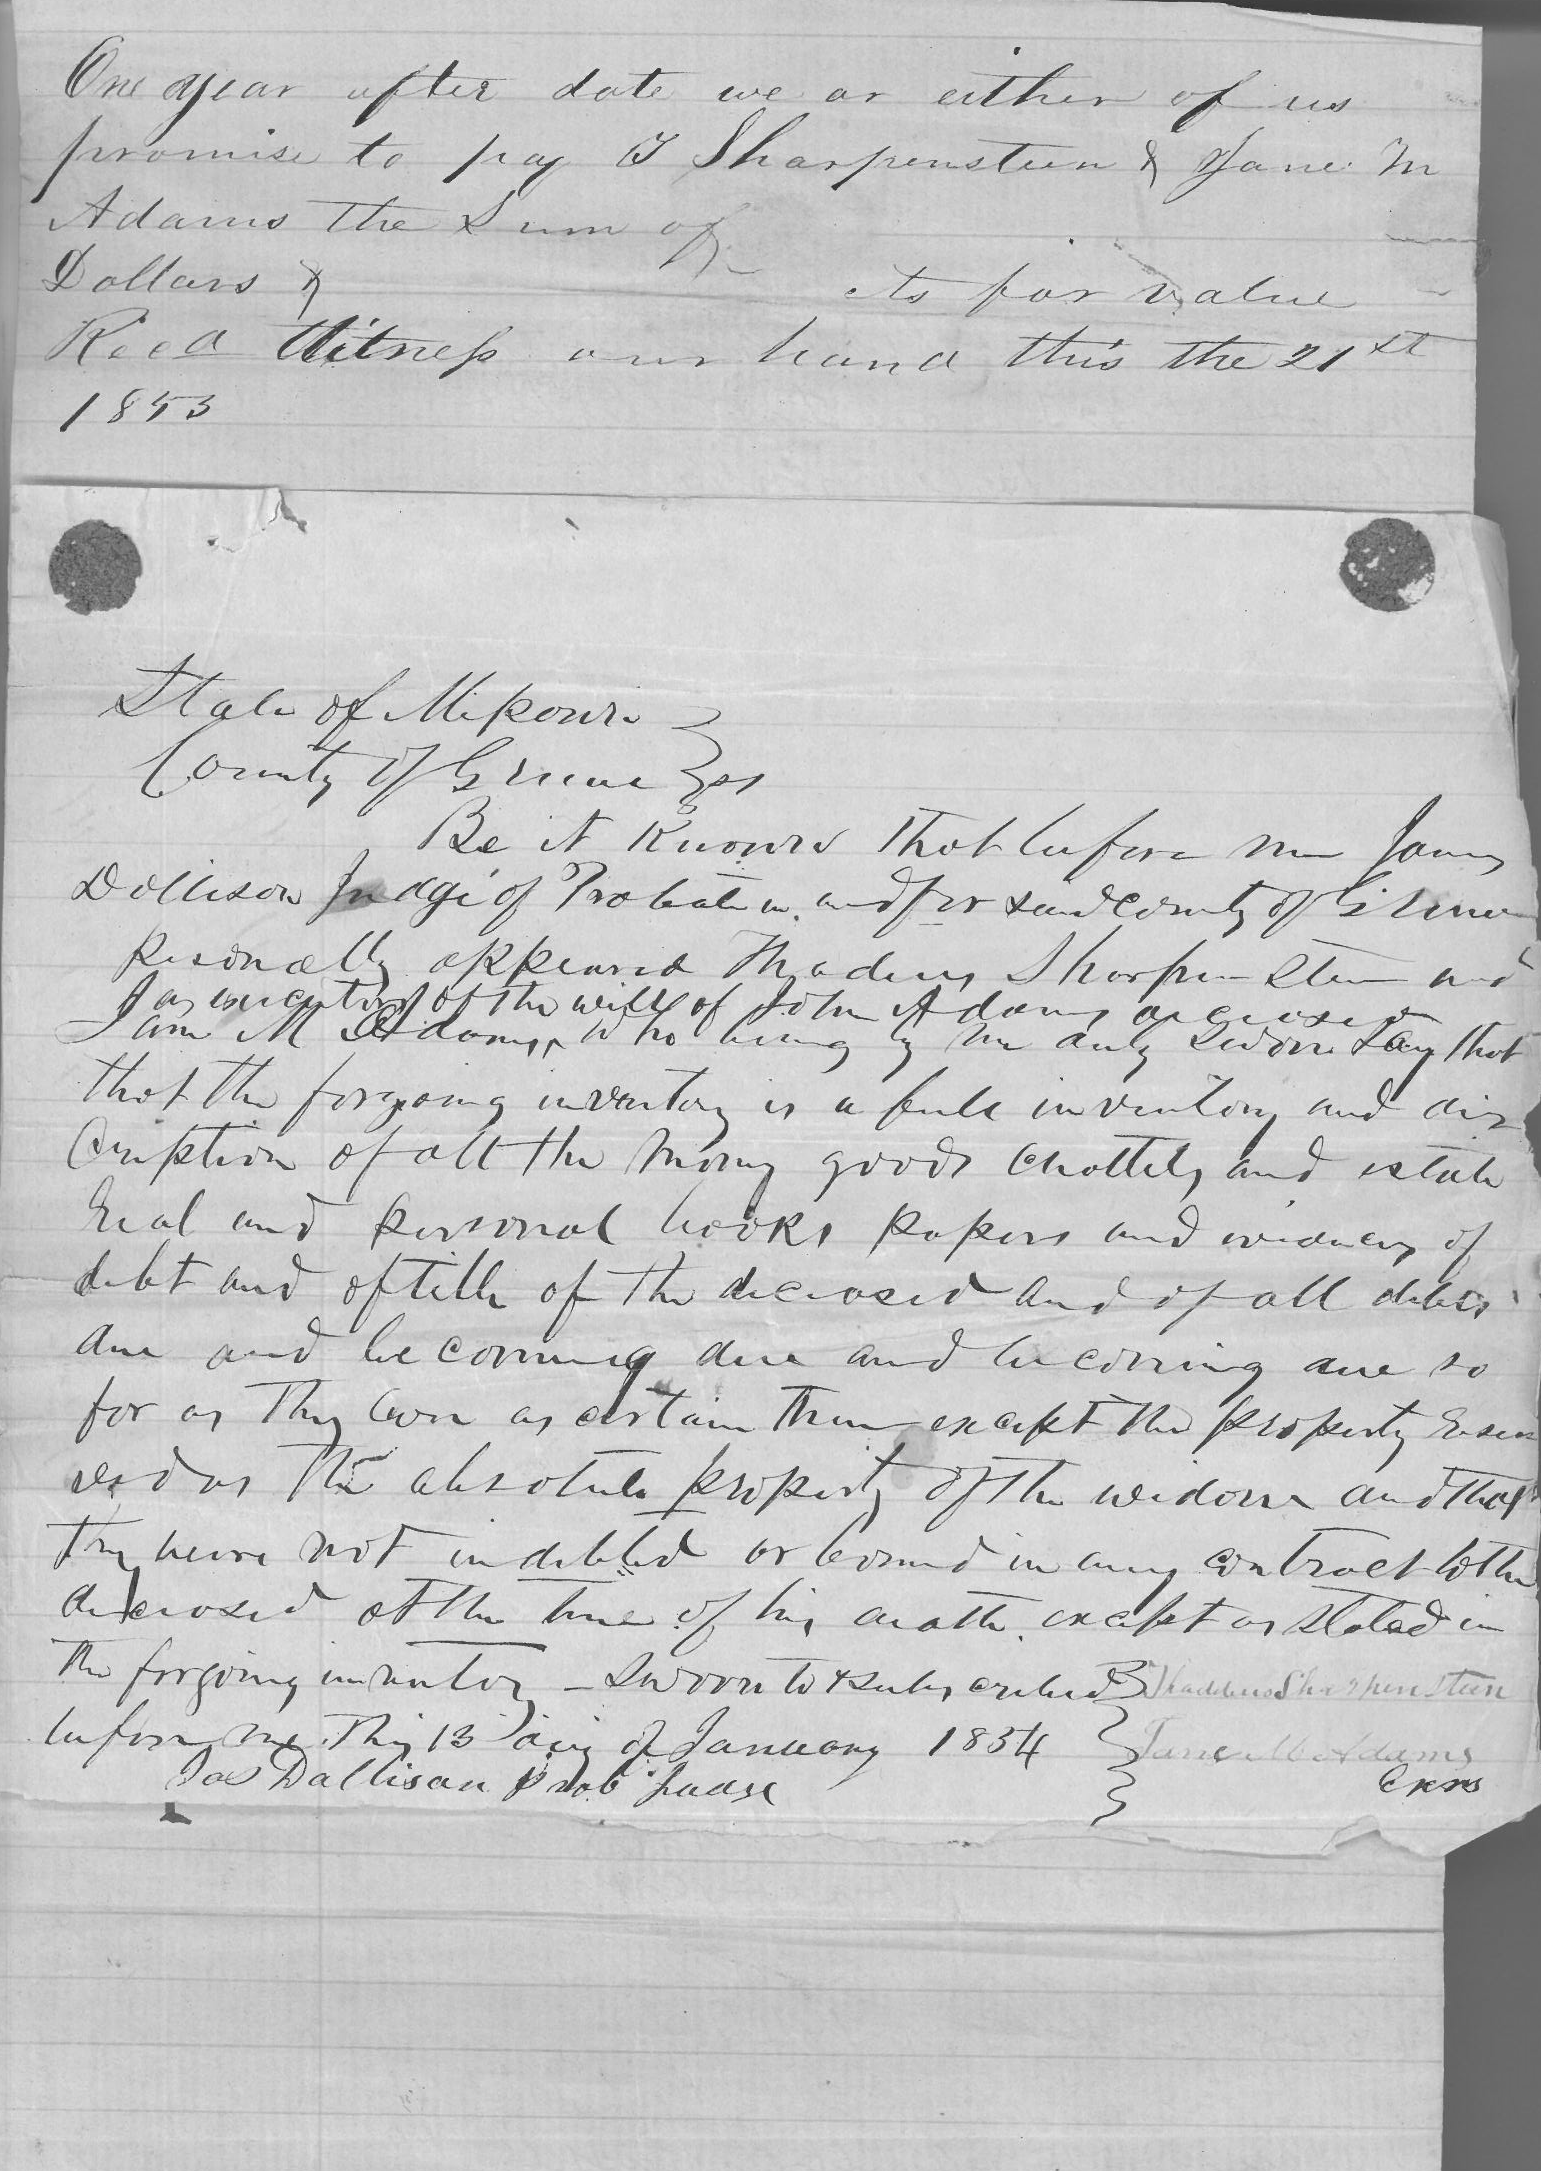 One year after date we or either of us
promise to pay T Sharpensteen & Jane M
Adams the Sum of
Dollars & cts for value
Recd Witness our hand this the 21st
1853
State of Missouri
County of Greene ss
Be it Known that before me James
Dollison Judge of Probate in and for said County of Greene
personally appeared Thadeus Sharpensteen and
as executors of the will of John Adams deceased
Jane M Adams, who being by me duly sworn say that
that the forgoing inventory is a full inventory and dis
cription of all the money goods chattels and estate
real and personal books papers and evidences of
debt and of title of the deceased and of all debts
due and becoming due and becoming due so
far as they can ascertain them except the property reser
ved as the absolute property of the widow and that
they were not indebted or bound in any contract to the
deceased at the time of his death except as stated in
the forgoing inventory – Sworn to & subscribed Thaddeus Sharpensteen
before me this 13 day of January 1854 Jane M Adams
Jas Dallisan prob judge Exrs